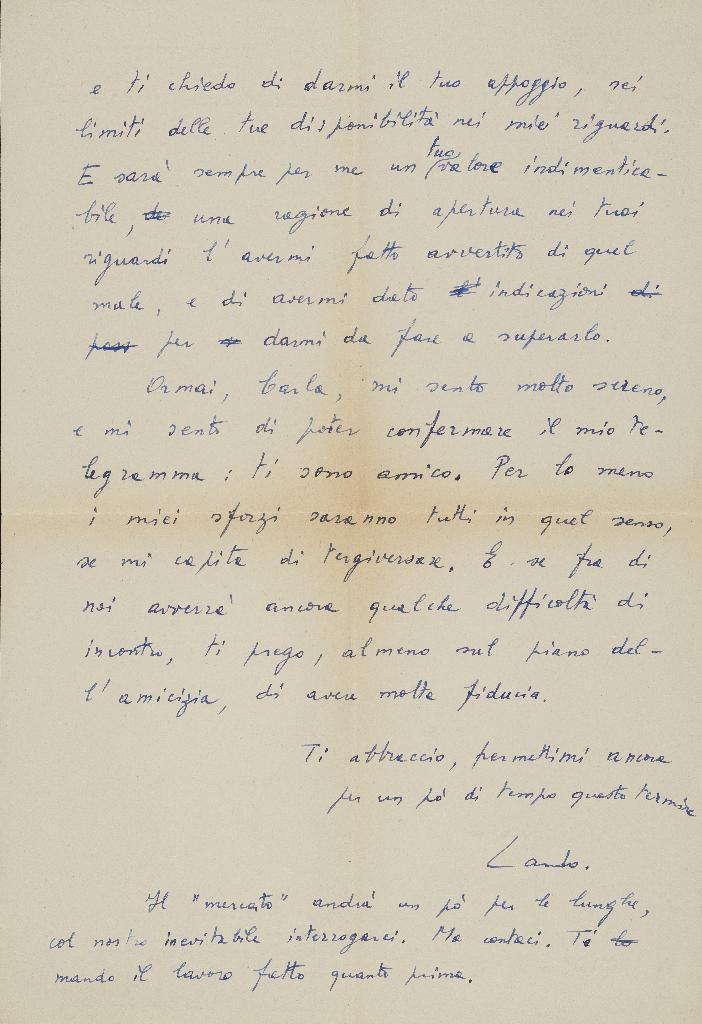 e ti chiedo di darmi il tuo appoggio, nei
limiti delle tue disponibilità nei miei riguardi.
E sarà sempre per me un tuo valore indimentica-
bile, de una ragione di apertura nei tuoi
riguardi l'avermi fatto avvertito di quel
male, e di avermi dato indicazioni di
poss per darmi da fare a superarlo.
Ormai, Carla, mi sento molto sereno,
e mi sento di poter confermare il mio te-
legramma: ti sono amico. Per lo meno
i miei sforzi saranno tutti in quel senso,
se mi capita di tergiversare. E se fra di
noi avverrà ancora qualche difficoltà di
incontro, ti prego, almeno sul piano del-
l'amicizia, di avere molta fiducia.
Ti abbraccio, permettimi ancora
per un pò di tempo questo termine
Lando.
Il "mercato" andrà un pò per le lunghe,
col nostro inevitabile interrogarci. Ma contaci. Ti lo
mando il lavoro fatto quanto prima.